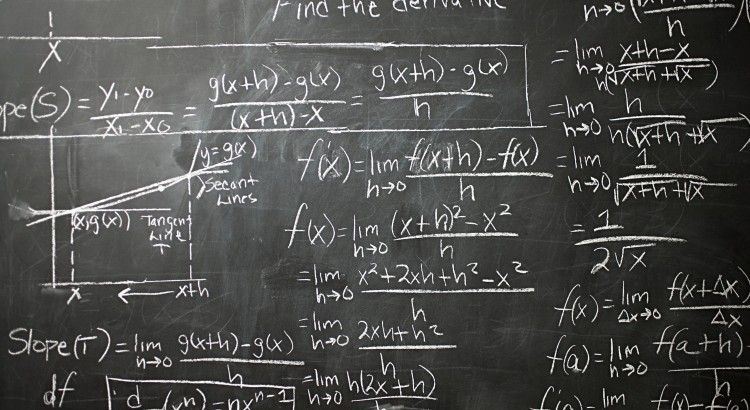 Find the derivative
X
Slope(S) = (y₁-y₀)/(x₁-x₀) = (g(x+h)-g(x))/((x+h)-x) = (g(x+h)-g(x))/h
y=g(x)
Secant
Lines
(x,g(x))
Tangent
Line
T
x ← x+h
Slope(T) = lim h→0 (g(x+h)-g(x))/h
df
d (xⁿ) = nxⁿ⁻¹
f'(x) = lim h→0 (f(x+h)-f(x))/h
f(x) = lim h→0 ((x+h)²-x²)/h
= lim h→0 (x²+2xh+h²-x²)/h
= lim h→0 (2xh+h²)/h
= lim h→0 h(2x+h)
h→0 h
= lim h→0 (x+h-x)/(h(√x+h+√x))
= lim h→0 h/(h(√x+h+√x))
= lim h→0 1/(√x+h+√x)
= 1/(2√x)
f(x) = lim Δx→0 f(x+Δx)/Δx
f(a) = lim h→0 f(a+h)-
lim